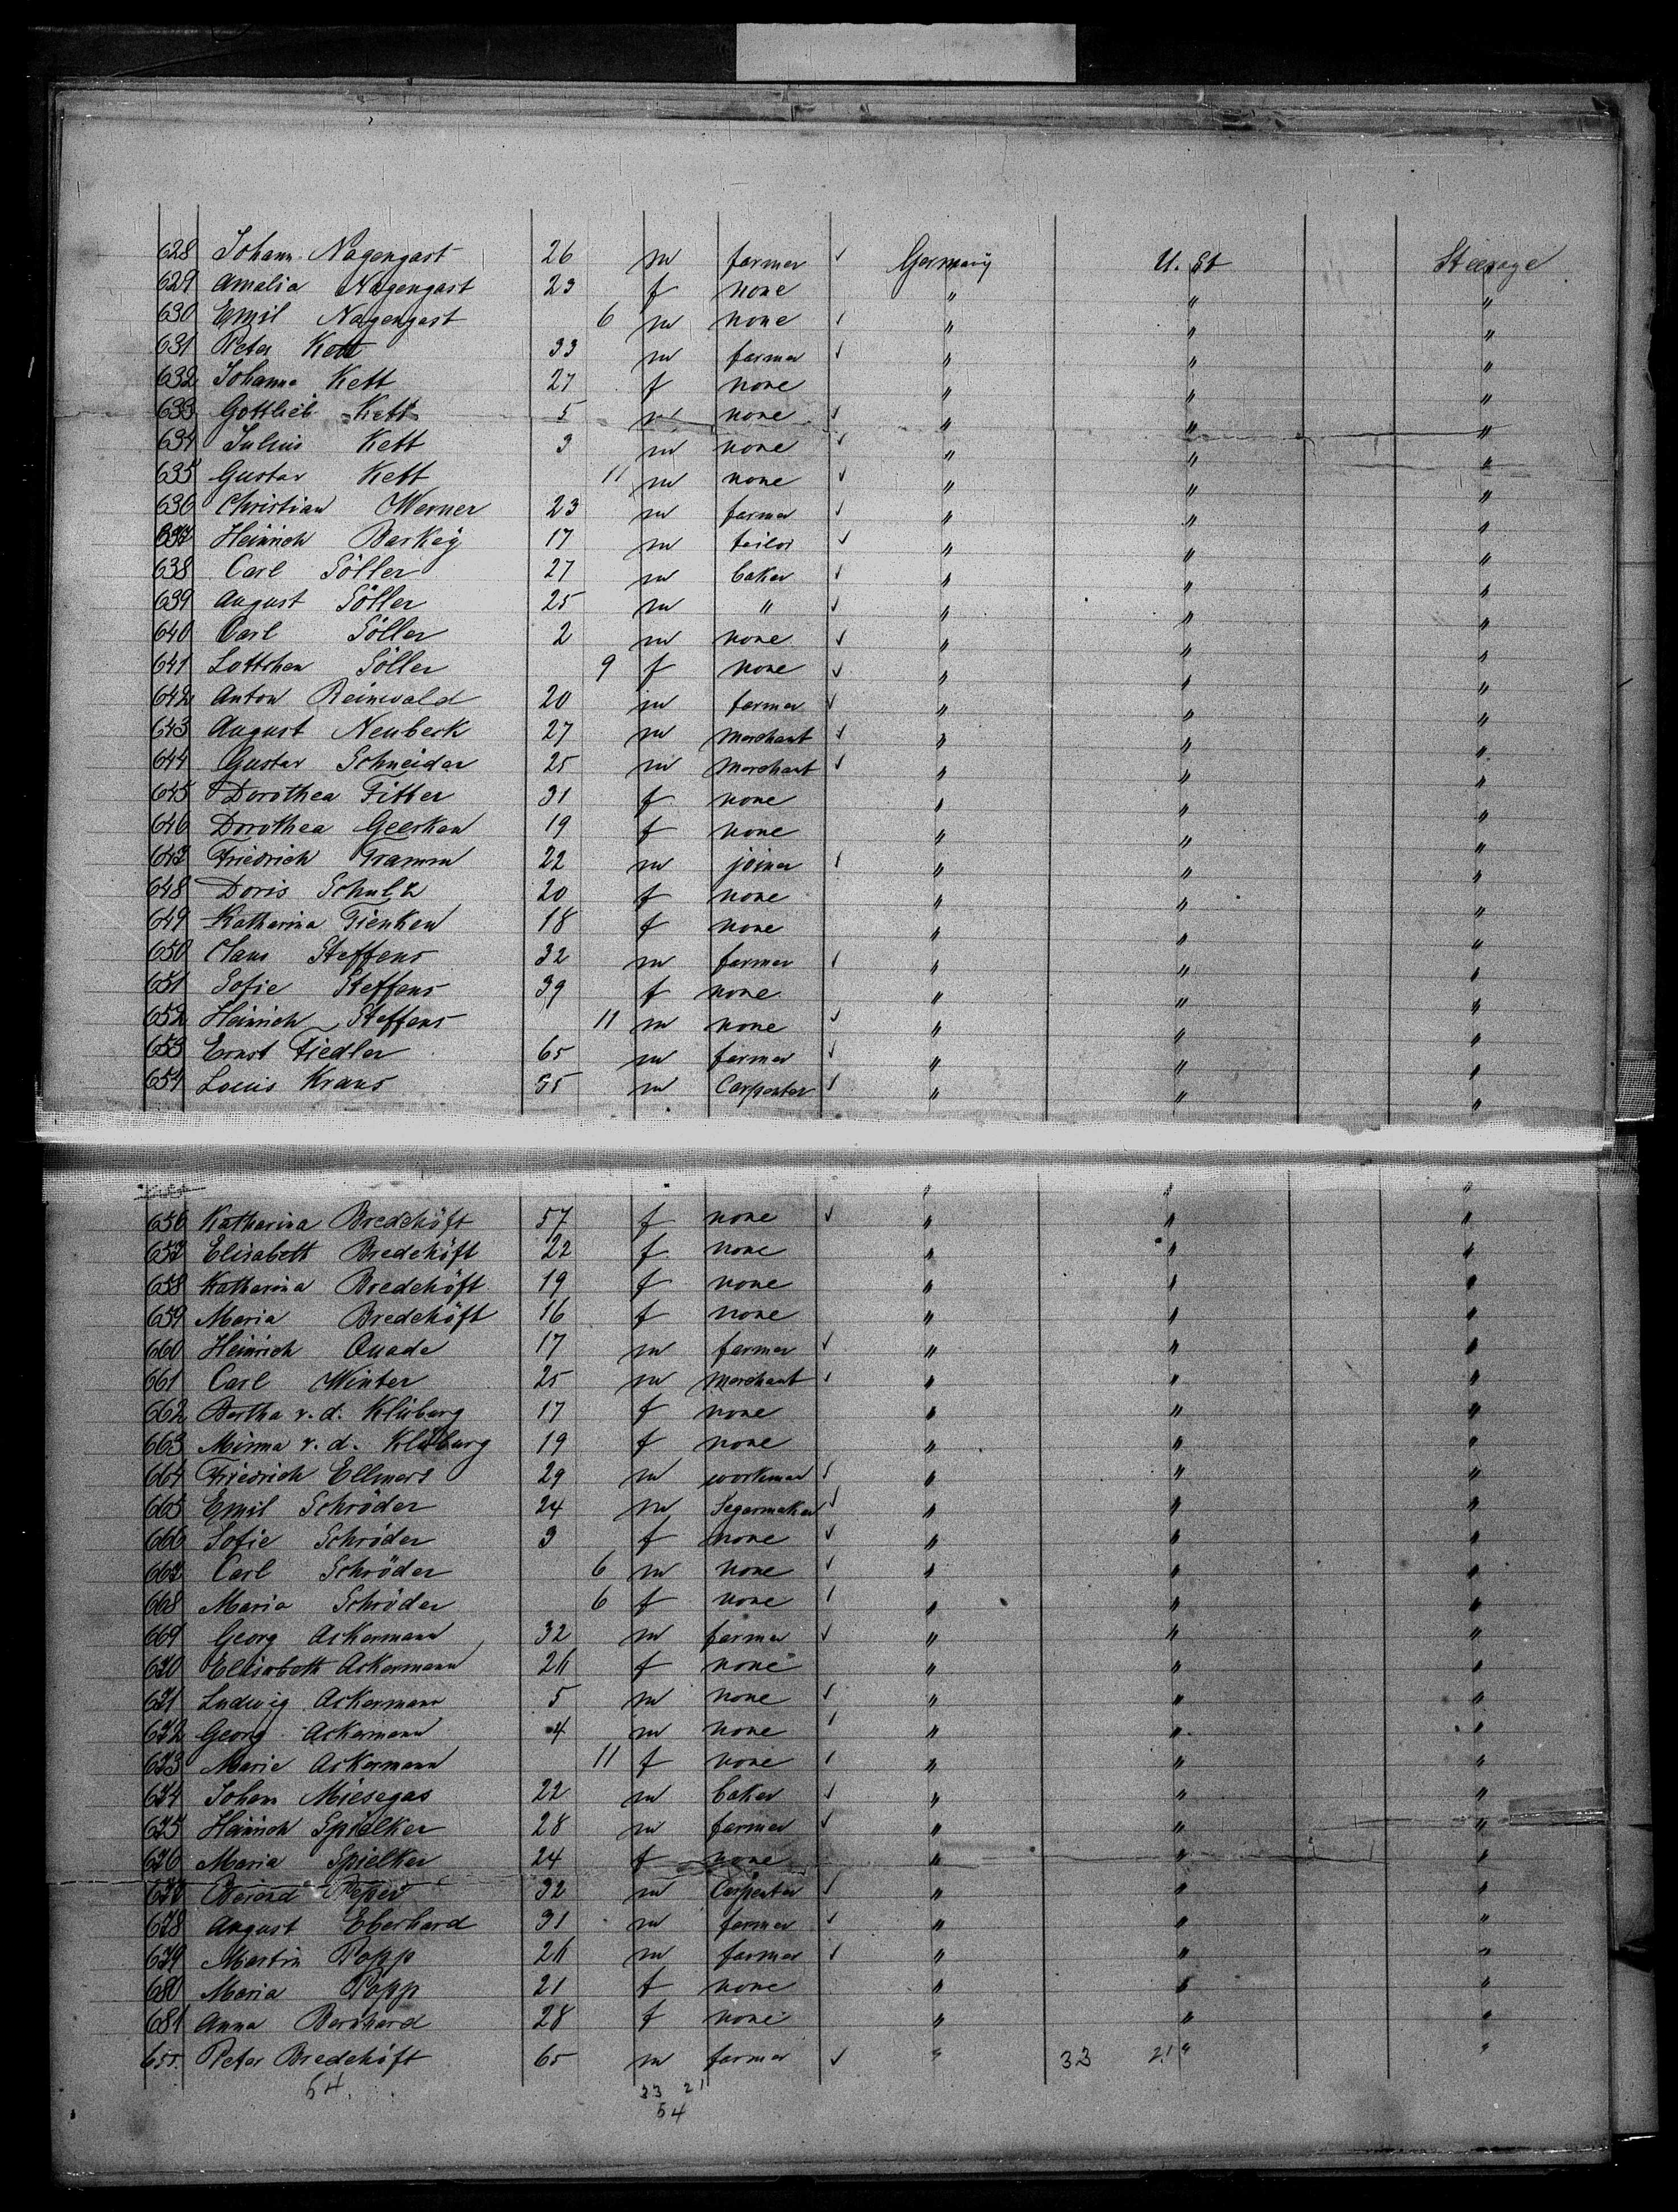 628 Johann Nagengast 26 m farmer ✓ Germany U. St Steerage
629 Amalia Nagengast 23 f none " " "
630 Emil Nagengast 6 m none ✓ " " "
631 Peter Kett 33 m farmer ✓ " " "
632 Johanna Kett 27 f none " " "
633 Gottlieb Kett 5 m none ✓ " " "
634 Julius Kett 3 m none ✓ " " "
635 Gustav Kett 11 m none ✓ " " "
636 Christian Werner 23 m farmer ✓ " " "
637 Heinrich Barkey 17 m tailor ✓ " " "
638 Carl Söller 27 m baker ✓ " " "
639 August Söller 25 m " ✓ " " "
640 Carl Söller 2 m none ✓ " " "
641 Lottchen Söller 9 f none ✓ " " "
642 Anton Reinwald 20 m farmer ✓ " " "
643 August Neubeck 27 m merchant ✓ " " "
644 Gustav Schneider 25 m merchant ✓ " " "
645 Dorothea Fitter 31 f none " " "
646 Dorothea Geerken 19 f none " " "
647 Friedrich Tramm 22 m joiner ✓ " " "
648 Doris Schulz 20 f none " " "
649 Katharina Tienken 18 f none " " "
650 Claus Steffens 32 m farmer ✓ " " "
651 Sofie Steffens 39 f none " " "
652 Heinrich Steffens 11 m none ✓ " " "
653 Ernst Fiedler 65 m farmer ✓ " " "
654 Louis Kraus 35 m Carpenter ✓ " " "
" " "
656 Katharina Bredehöft 57 f none ✓ " " "
657 Elisabeth Bredehöft 22 f none " " "
658 Katharina Bredehöft 19 f none " " "
659 Maria Bredehöft 16 f none " " "
660 Heinrich Quade 17 m farmer ✓ " " "
661 Carl Winter 25 m merchant ✓ " " "
662 Bertha v. d. Klüburg 17 f none " " "
663 Minna v. d. Klüburg 19 f none " " "
664 Friedrich Ellmers 29 m workman ✓ " " "
665 Emil Schröder 24 m Segarmaker ✓ " " "
666 Sofie Schröder 3 f none ✓ " " "
667 Carl Schröder 6 m none ✓ " " "
668 Maria Schröder 6 f none ✓ " " "
669 Georg Ackermann 32 m farmer ✓ " " "
670 Elisabeth Ackermann 26 f none " " "
671 Ludwig Ackermann 5 m none ✓ " " "
672 Georg Ackermann 4 m none ✓ " " "
673 Marie Ackermann 11 f none ✓ " " "
674 Johann Miesegas 22 m baker ✓ " " "
675 Heinrich Spielker 28 m farmer ✓ " " "
676 Maria Spielker 24 f none " " "
677 Berend Peper 32 m Carpenter ✓ " " "
678 August Eberhard 31 m farmer ✓ " " "
679 Martin Popp 26 m farmer ✓ " " "
680 Maria Popp 21 f none " " "
681 Anna Bernhard 28 f none " " "
655. Peter Bredehöft 65 m farmer ✓ " 33 21 " "
54. 33 21
54